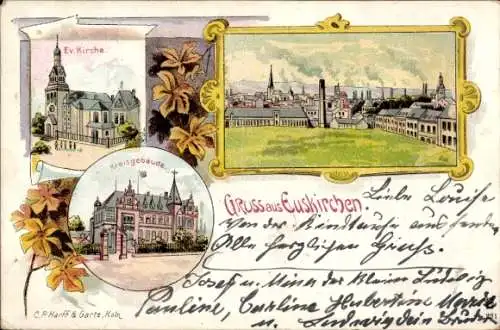 Ev. Kirche.
Kreisgebäude.
Gruss aus Euskirchen.
Liebe Louise
Von der Kindtaufe aus sendet
Alle herzlichen Gruss.
Josef u. Mina der kleine Ludwig
Pauline, Carline Hubertine Marie
u. Ludwig dein Bruder
C. P. & Garte, Köln.